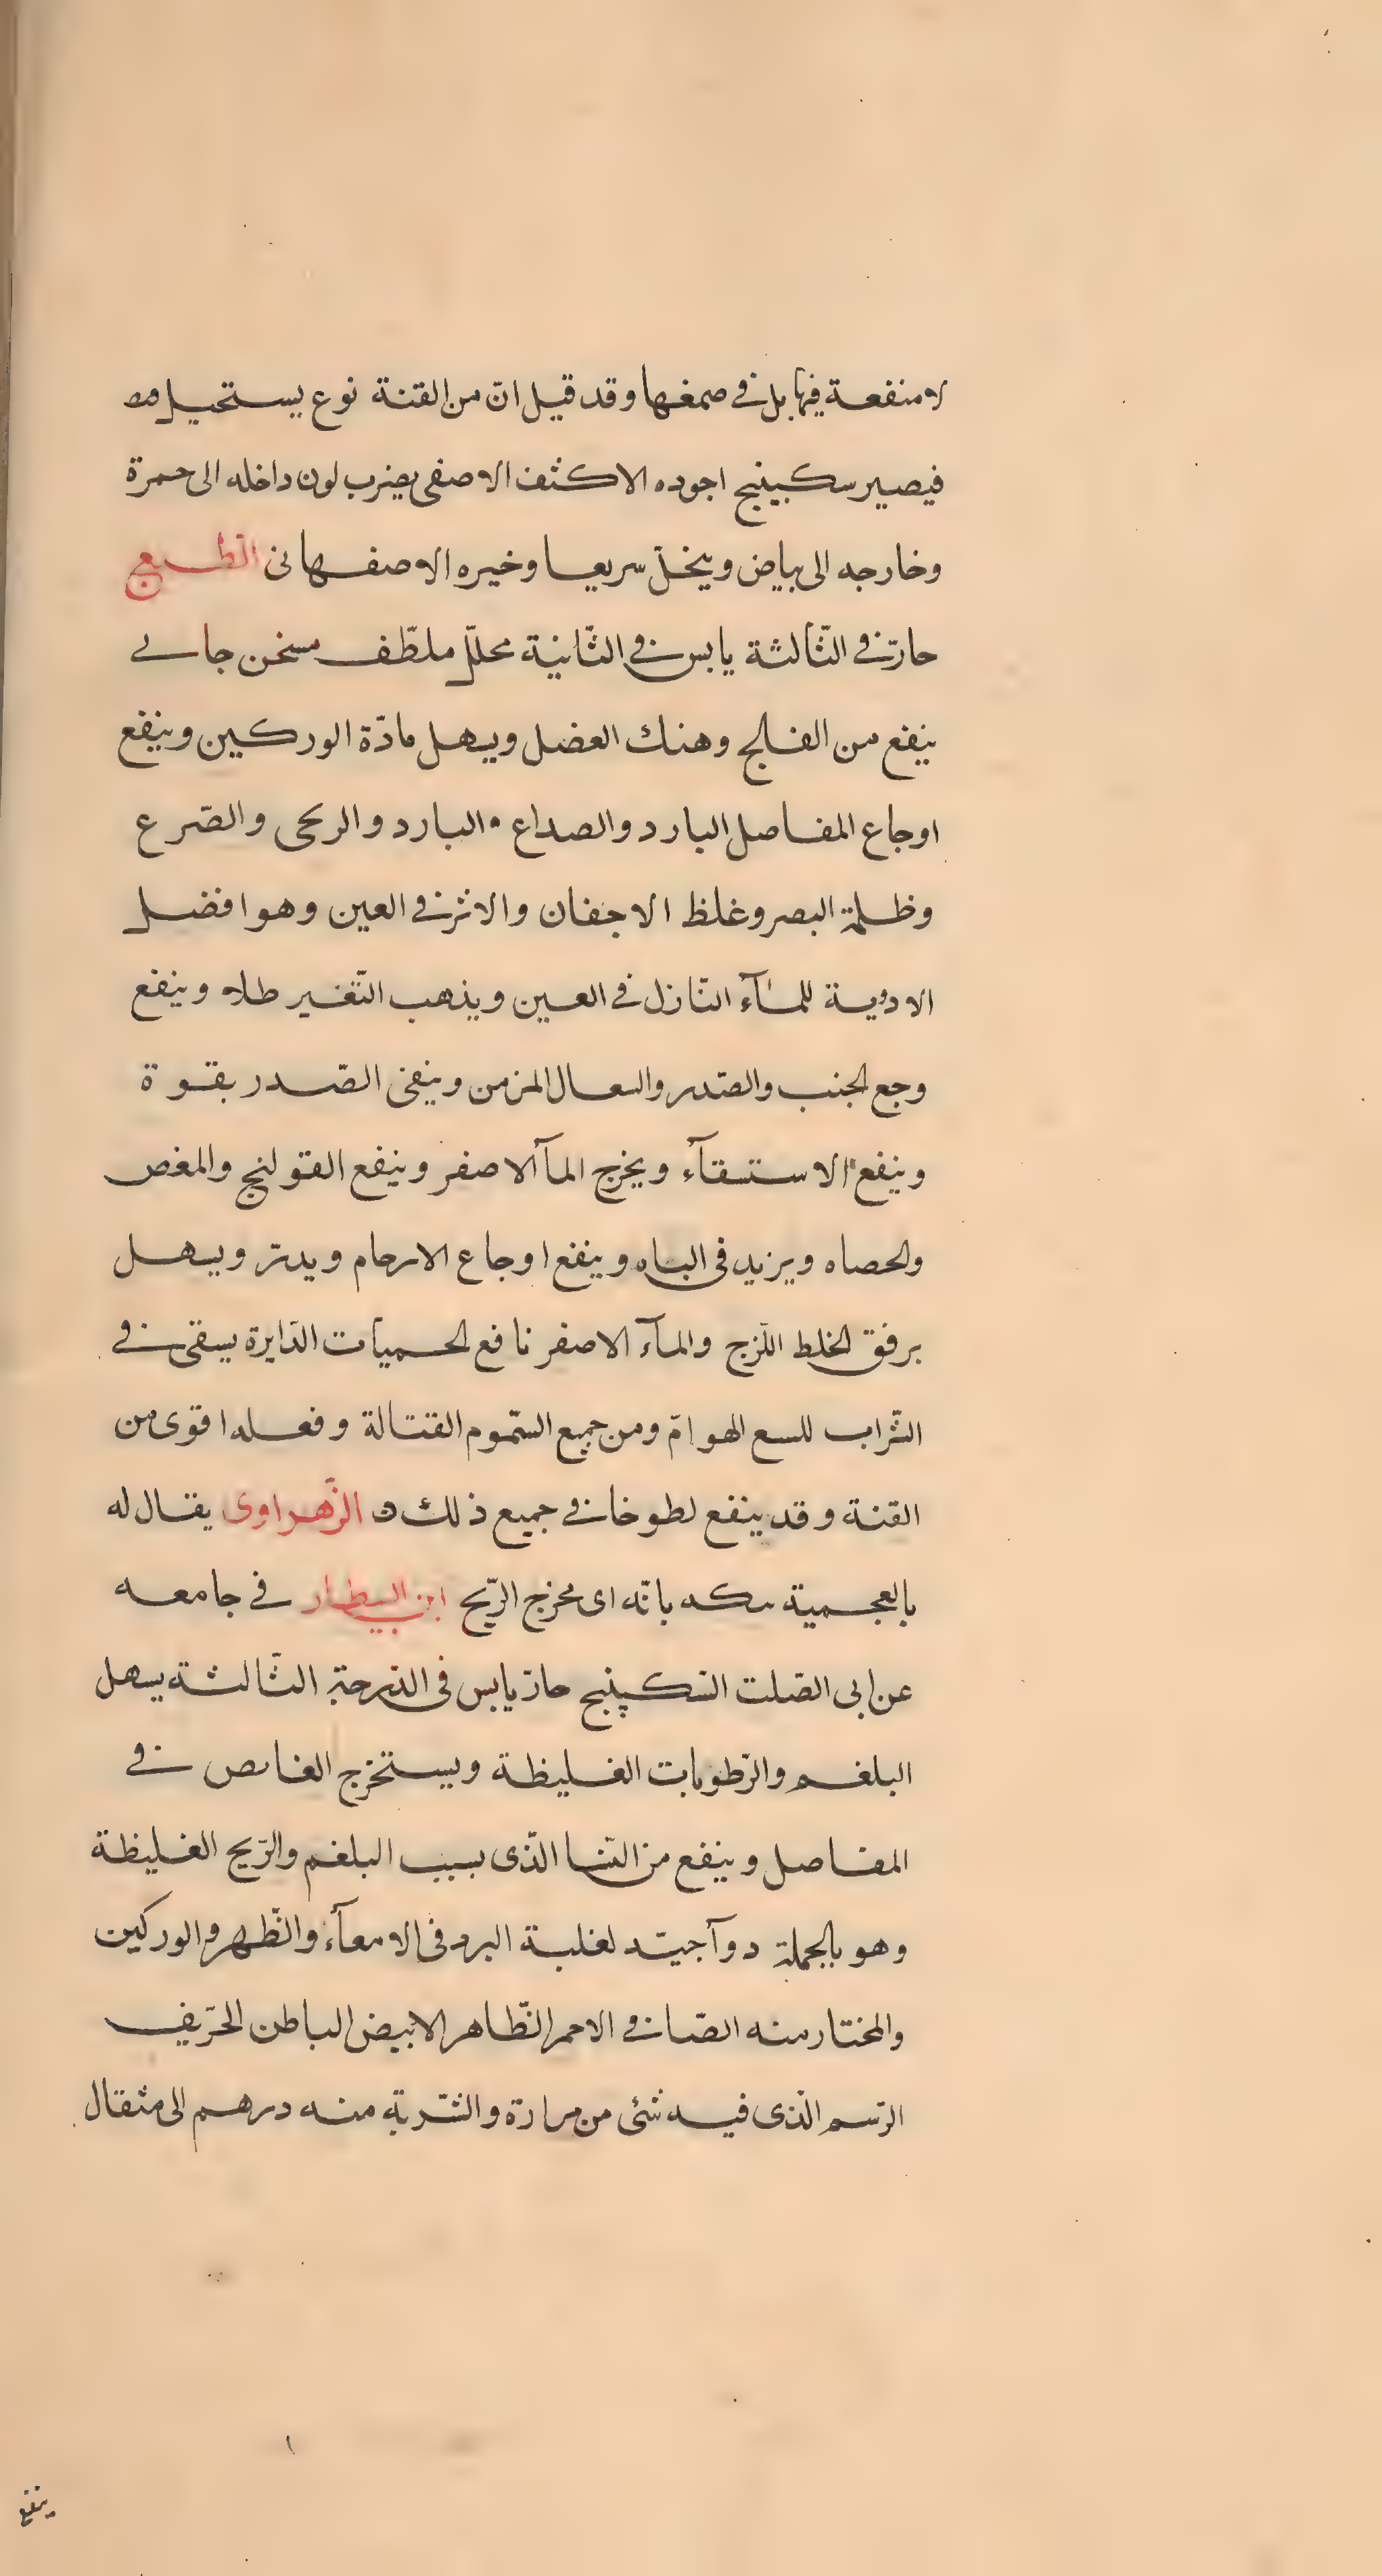 لا منفعة فيها بل في صمغها وقد قيل انّ من القنة نوع يستحيل
فيصير سكبينج اجوده الاكثف الاصفى يضرب لون داخله الى حمرة
وخارجه الى بياض وينحلّ سريعا وخيره الاصفهانى الطبع
حارّ في الثّالثة يابس في الثّانية محلّل ملطّف مسخن جالى
ينفع من الفالج وهتك العضل ويسهل مادّة الوركين وينفع
اوجاع المفاصل البارد والصداع البارد والريحى والصّرع
وظلمة البصر وغلظ الاجفان والاثر في العين وهو افضل
الادوية للمآء النّازل في العين ويذهب التّغير طلاء وينفع
وجع الجنب والصّدر والسعال المزمن وينقى الصّدر بقوة
وينفع الاستسقآء ويخرج المآ الاصفر وينفع القولنج والمغص
والحصاه ويزيد فى الباه وينفع اوجاع الارحام ويدرّ ويسهل
برفق الخلط اللّزج والمآء الاصفر نافع لحميات الدّايرة يسقى في
الشّراب للسع الهوامّ ومن جميع السّموم القتالة وفعله اقوى من
القنة وقد ينفع لطوخا في جميع ذلك الزّهراوى يقال له
بالعجمية سكه بانّه اى مخرج الرّيح ابن البيطار في جامعه
عن ابى الصّلت السّكپينج حارّ يابس فى الدّرجة الثّالثة يسهل
البلغم والرّطوبات الغليظة ويستخرج الغائص في
المفاصل وينفع من النّسا الّذى بسبب البلغم والرّيح الغليظة
وهو بالجملة دوآ جيّد لغلبة البرد فى الامعآء والظّهر والوركين
والمختار منه الصّافى الاحمر الظّاهر الابيض الباطن الحرّيف
الرّسم الّذى فيه شئ من مرارة والشّربة منه درهم الى مثقال
ينفع